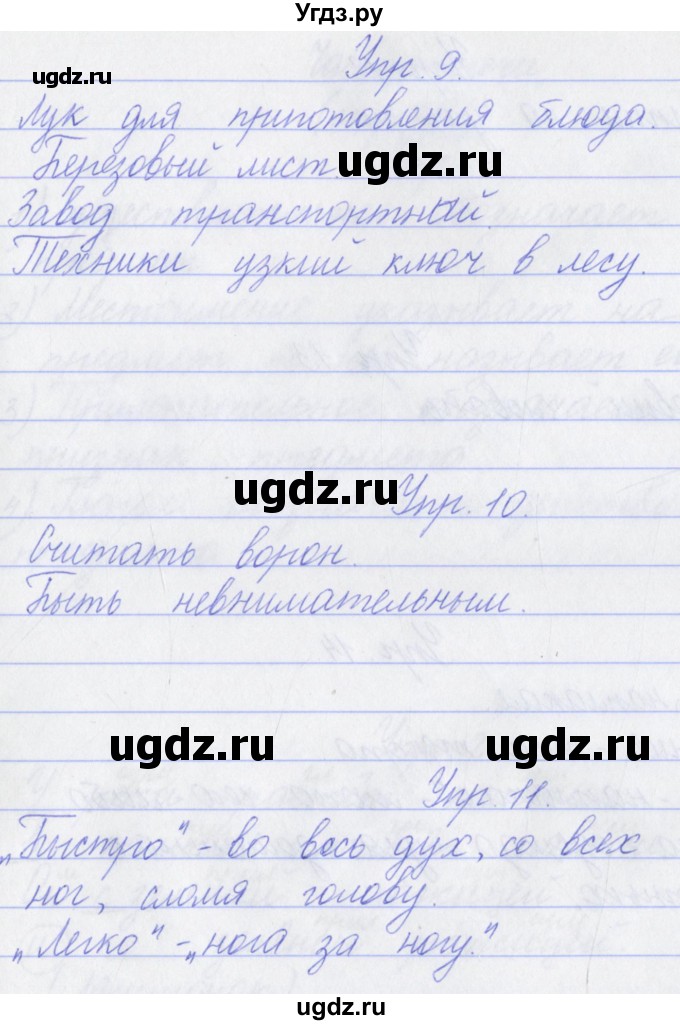 Угдз.ру
ugdz.ru
Упр. 9.
Лук для приготовления блюда.
Березовый лист.
ugdz.ru
Завод транспортный.
Техники узкий ключ в лесу.
ugdz.ru
Упр. 10.
Считать ворон.
Быть невнимательным.
ugdz.ru
ugdz.ru
Упр. 11.
„Быстро" - во весь дух, со всех
ног, сломя голову.
„Легко" - „нога за ногу."
ugdz.ru